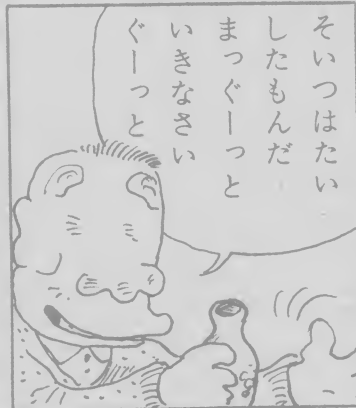 そいつはたい
したもんだ
まっぐーっと
いきなさい
ぐーっと